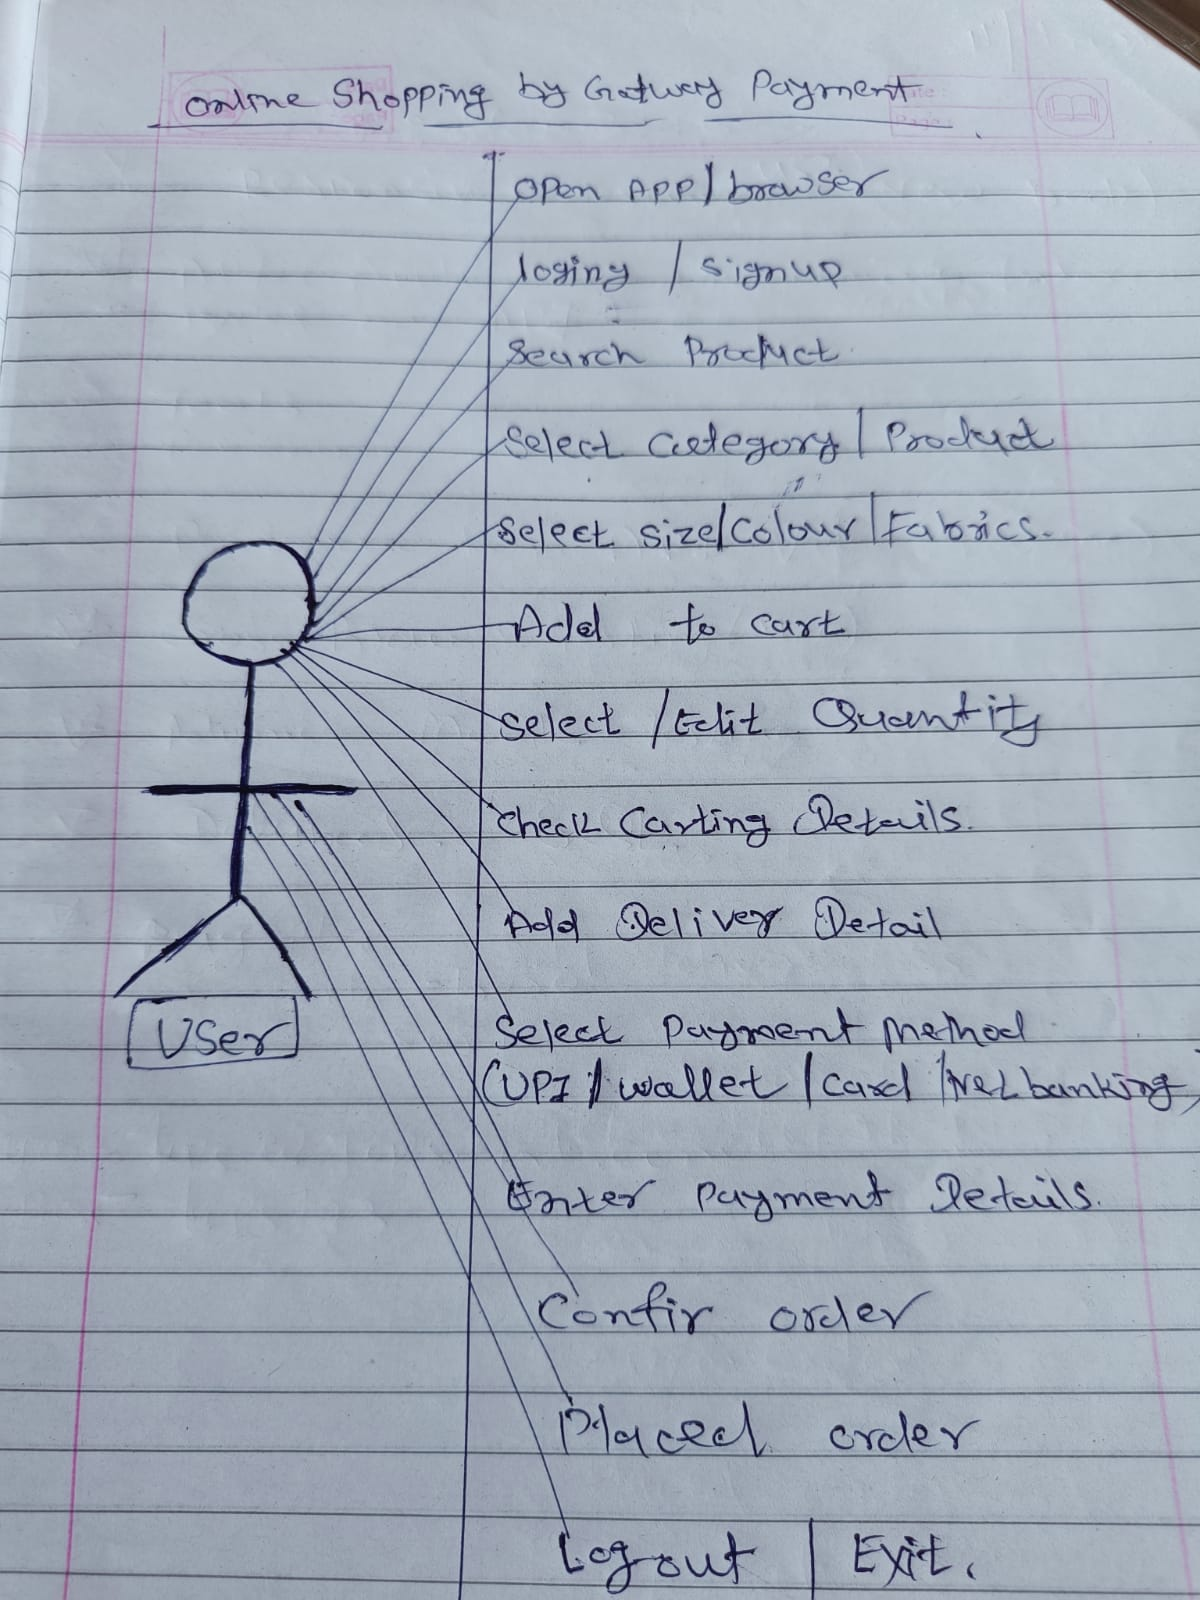 Online Shopping by Gatway Payment
Open APP/browser
loging / signup
Search Product
Select Category/Product
Select Size/Colour/Fabrics.
Add to cart
Select /Edit Quantity
Check Carting Details.
Add Deliver Detail
Select Payment Method
(UPI/wallet/card/Net banking)
Enter Payment Details.
Confir order
Placed order
Logout / Exit.
User